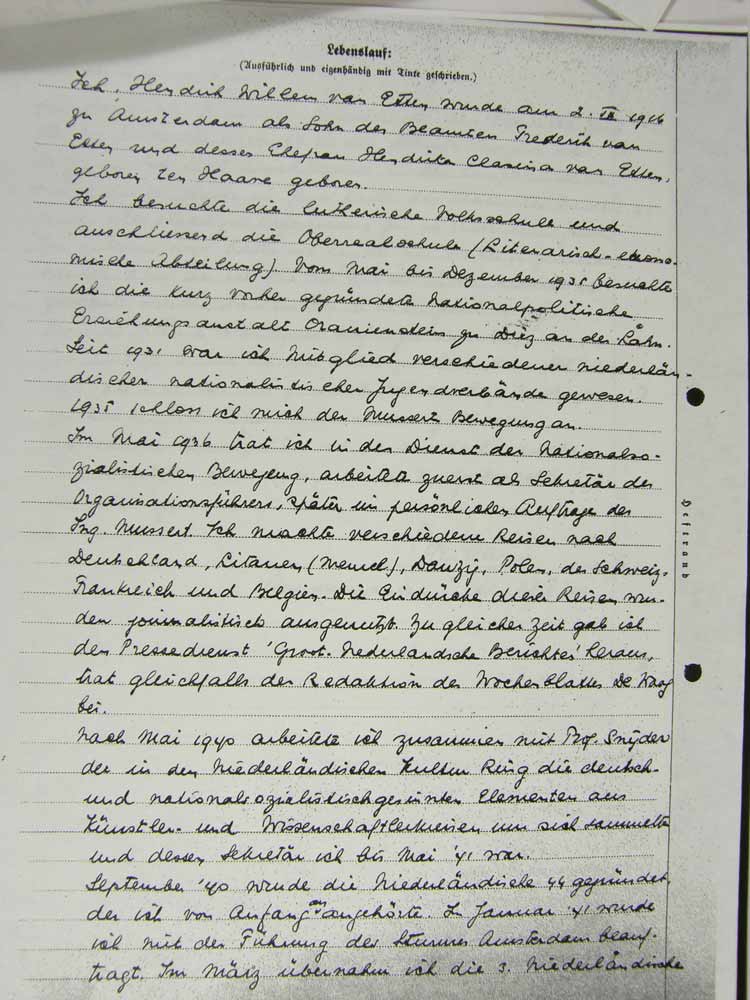 Lebenslauf:
(Ausführlich und eigenhändig mit Tinte geschrieben.)
Ich, Hendrik Willem van Etten wurde am 2. IX 1916
zu Amsterdam als Sohn des Beamten Frederik van
Etten und dessen Ehefrau Hendrika Clasina van Etten,
geboren ten Haave geboren.
Ich besuchte die lutherische Volksschule und
anschliessend die Oberrealschule (Literarisch-ekono-
mische Abteilung) Vom Mai bis Dezember 1935 besuchte
ich die kurz vorher gegründete Nationalpolitische
Erziehungsanstalt Oranienstein zu Diez an der Lahn.
Seit 1931 war ich Mitglied verschiedener niederlän-
discher nationalistischer Jugendverbände gewesen.
1935 schloss ich mich der Mussert Bewegung an.
Im Mai 1936 trat ich in den Dienst der Nationalso-
zialistischen Bewegung, arbeitete zuerst als Sekretär des
Organisationsführers, später im persönlichen Auftrage des
Ing. Mussert. Ich machte verschiedene Reisen nach
Deutschland, Litauen (Memel), Danzig, Polen, der Schweiz,
Frankreich und Belgien. Die Eindrücke dieser Reisen wur-
den journalistisch ausgenutzt. Zu gleicher Zeit gab ich
den Pressedienst 'Groot-Nederlandsche Berichten' heraus,
trat gleichfalls der Redaktion des Wochenblattes De Waag
bei.
Nach Mai 1940 arbeitete ich zusammen mit Prof. Snijder
der in den Niederländischen Kultur Ring die deutsch-
und nationalsozialistischgesinnten Elementen aus
Künstler- und Wissenschaftlerkreisen um sich sammelte
und dessen Sekretär ich bis Mai '41 war.
September '40 wurde die Niederländische SS gegründet,
der ich von Anfang an angehörte. In Januar '41 wurde
ich mit der Führung des Sturmes Amsterdam beauf-
tragt. Im März übernahm ich die 3. Niederländische
Heftrand